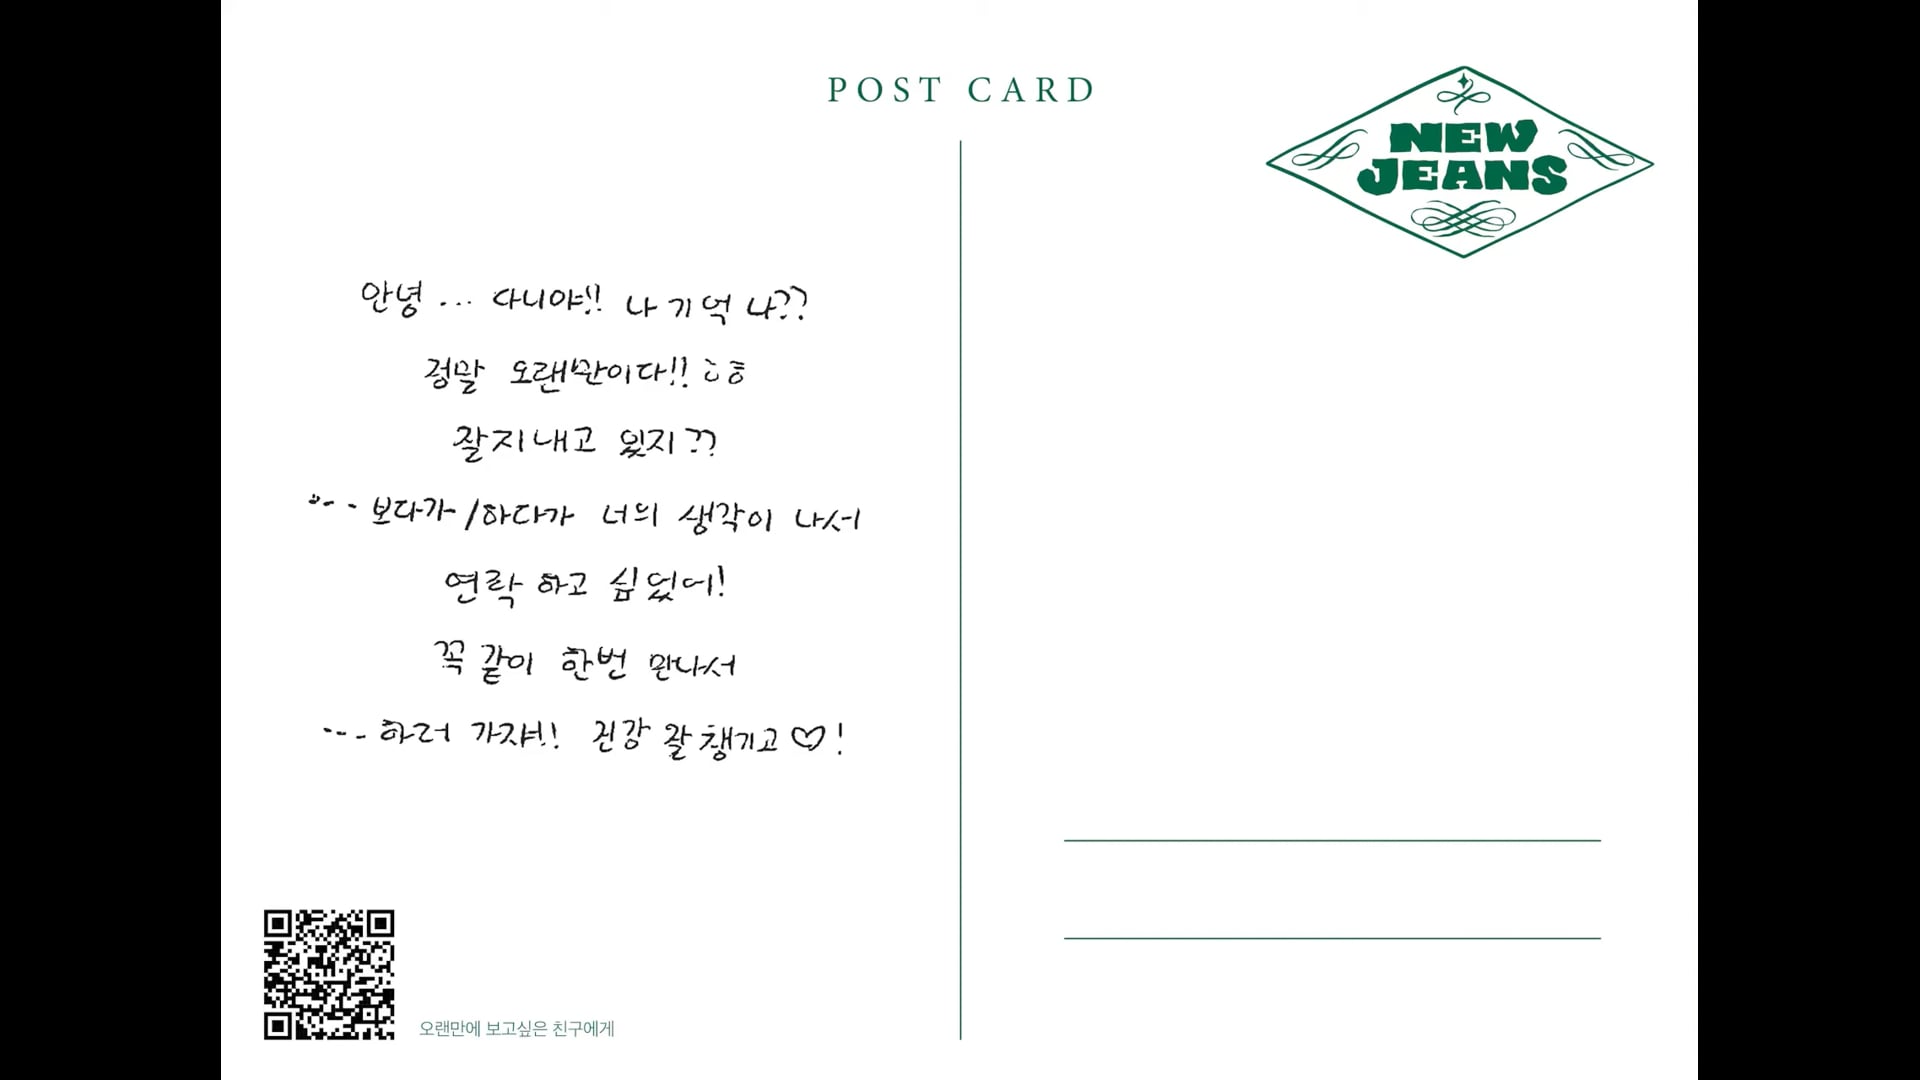 POST CARD
NEW
JEANS
안녕... 다니야!! 나 기억 나??
정말 오랜만이다!! ㅎㅎ
잘지내고 있지??
... 보다가/하다가 너의 생각이 나서
연락 하고 싶었어!
꼭 같이 한번 만나서
... 하러 가자!! 건강 잘 챙기고♡!
오랜만에 보고싶은 친구에게